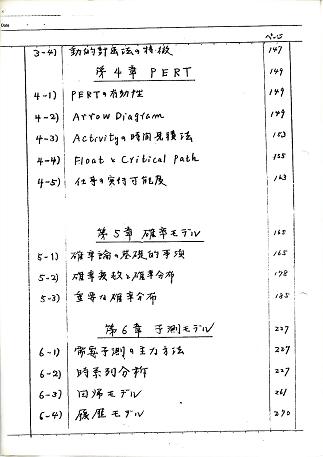 Date
ページ
3-4) 動的計画法の特徴 147
第4章 PERT 149
4-1) PERTの有効性 149
4-2) Arrow Diagram 149
4-3) Activityの時間見積法 153
4-4) Floatと Critical Path 155
4-5) 仕事の実行可能度 163
第5章 確率モデル 165
5-1) 確率論の基礎的事項 165
5-2) 確率変数と確率分布 178
5-3) 重要な確率分布 185
第6章 予測モデル 227
6-1) 需要予測の主力方法 227
6-2) 時系列分析 227
6-3) 回帰モデル 261
6-4) 履歴モデル 290